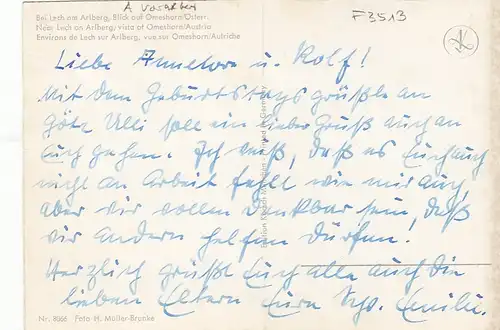 A Vorarlberg
F3513
Bei Lech am Arlberg, Blick auf Omeshorn/Österr.
Near Lech on Arlberg, vista of Omeshorn/Austria
Environs de Lech sur Arlberg, vue sur Omeshorn/Autriche
Liebe Annelore u. Rolf!
Mit dem Geburtstagsgrüßle an
Götz Ulli soll ein lieber Gruß auch an
Euch gehen. Ich weiß, daß es Euch auch
nicht an Arbeit fehlt wie mir auch,
aber wir wollen dankbar sein, daß
wir andern helfen dürfen!
Herzlich grüßt Euch alle auch die
lieben Eltern Eure Schw. Emilie.
Printed in Germany
Nr. 8066 Foto H. Müller-Brunke